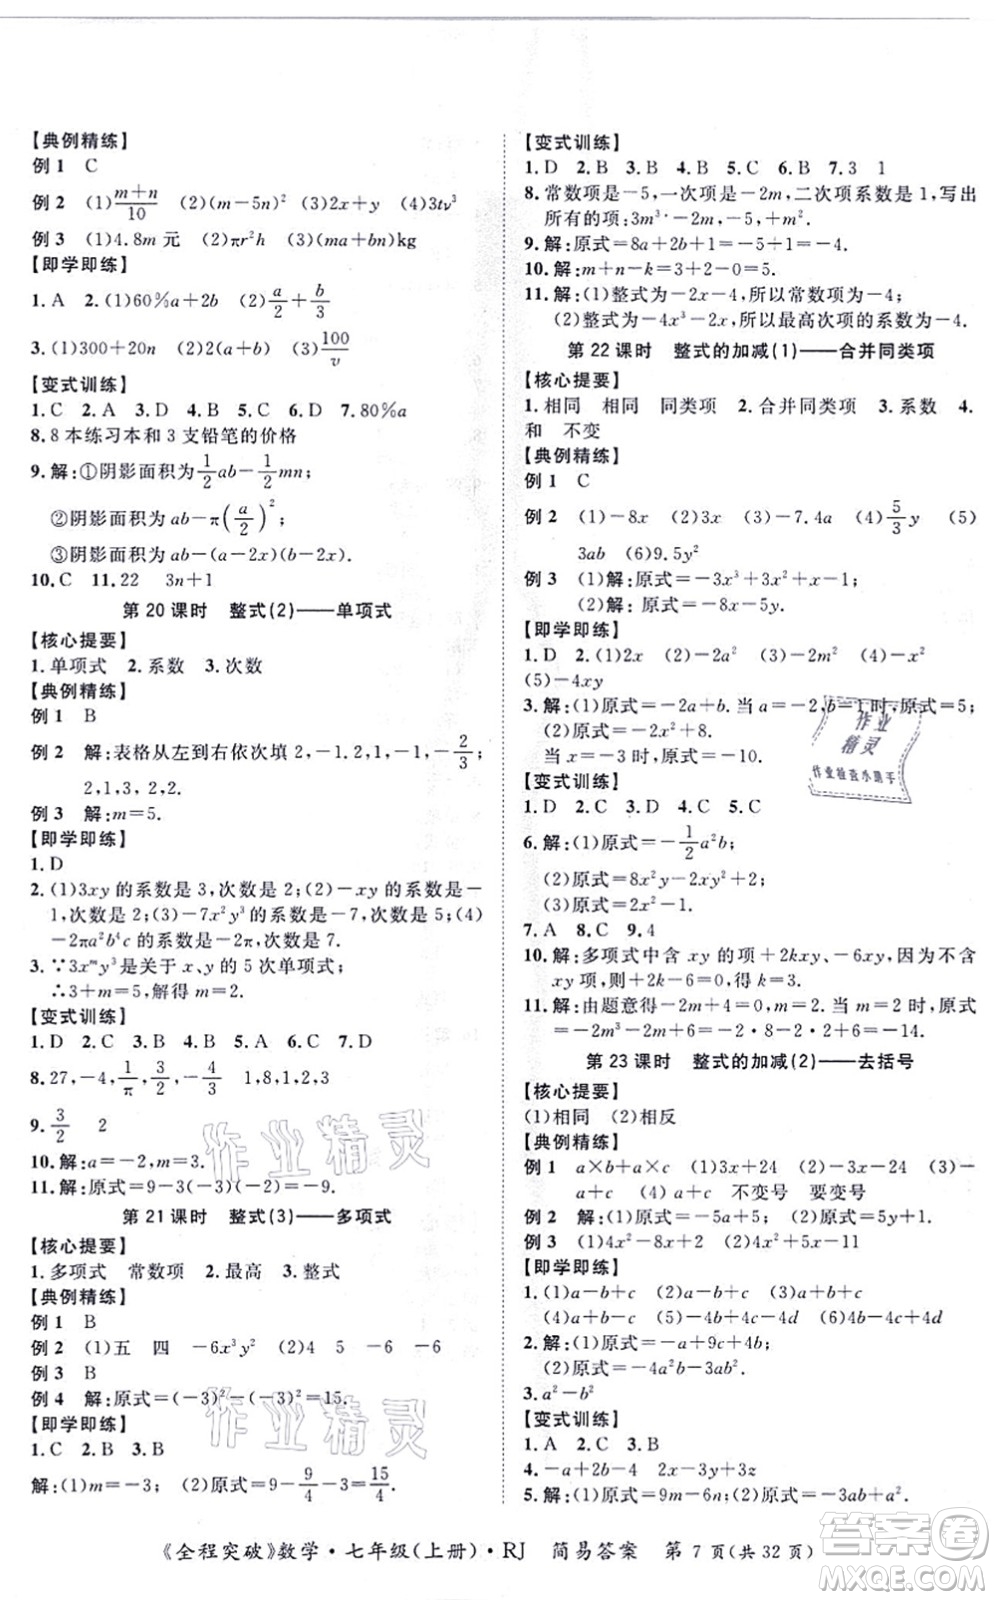 【典例精练】
例 1　C
例 2　(1)(m+n)/10　(2)(m－5n)²　(3)2x+y　(4)3tv³
例 3　(1)4.8m 元　(2)πr²h　(3)(ma+bn)kg
【即学即练】
1. A　2. (1)60%a+2b　(2)a/2+b/3
3. (1)300+20n　(2)6x²　(3)100/v
【变式训练】
1. C　2. A　3. D　4. C　5. B　6. D　7. 80%a
8. 8 本练习本和 3 支铅笔的价格
9. 解:①阴影面积为1/2ab－1/2mn;
②阴影面积为 ab－π(a/2)²;
③阴影面积为 ab－(a－2x)(b－2x).
10. C　11. 22　3n+1
第 20 课时　整式(2)——单项式
【核心提要】
1. 单项式　2. 系数　3. 次数
【典例精练】
例 1　B
例 2　解:表格从左到右依次填 2,－1.2,1,－1,－2/3;
2,1,3,2,2.
例 3　解:m=5.
【即学即练】
1. D
2. (1)3xy 的系数是 3,次数是 2;(2)－xy 的系数是－
1,次数是 2;(3)－7x²y³的系数是－7,次数是 5;(4)
－2πa²b⁴c 的系数是－2π,次数是 7.
3. ∵3xᵐy³是关于 x、y 的 5 次单项式,
∴3+m=5,解得 m=2.
【变式训练】
1. D　2. C　3. C　4. B　5. A　6. C　7. D
8. 27,－4,1/π,3/2,－4/3　1,8,1,2,3
9. 3/2　2
10. 解:a=－2,m=3.
11. 解:原式=9－3－(－2)=8.
第 21 课时　整式(3)——多项式
【核心提要】
1. 多项式　常数项　2. 最高　3. 整式
【典例精练】
例 1　B
例 2　(1)五　四　－6x³y²　(2)4　5　－6　－6
例 3　B
例 4　解:原式=(－3)²－2×(－3)=15.
【即学即练】
1. C　2. B　3. B
解:(1)m=－3;　(2)原式=9－9/4－3=15/4.
【变式训练】
1. D　2. B　3. B　4. A　5. D　6. B　7. 3　1
8. 常数项是－5,一次项是－2m,二次项系数是 1,写出
所有的项:3m³·－2m,－5,+m².
9. 解:原式=8a+2b+1=－5+1=－4.
10. 解:m+n－k=3+2－0=5.
11. 解:(1)整式为－2x－4,所以常数项为－4;
(2)整式为－4x³－2x,所以最高次项的系数为－4.
第 22 课时　整式的加减(1)——合并同类项
【核心提要】
1. 相同　相同　同类项　2. 合并同类项　3. 系数　4.
和　不变
【典例精练】
例 1　C
例 2　(1)－8x　(2)3x　(3)－7.4a　(4)5/3y　(5)
3ab　(6)9.5y²
例 3　(1)解:原式=－3x³+3x²+x－1;
(2)解:原式=－8x－5y.
【即学即练】
1. D　2. (1)2x　(2)－2a²　(3)－2m²　(4)－x²
(5)－4xy
3. 解:(1)原式=－2a+b. 当 a=－2,b=1 时,原式=5;
(2)原式=2x－7x²－7.
当 x=－3 时,原式=－76.
【变式训练】
1. D　2. C　3. C　4. A　5. B
6. 解:(1)原式=－1/2a²b;
(2)原式=8a²－a－6.
7. A　8. C　9. 4
10. 解:多项式中含 xy 的项为+2kxy、－6xy,若不含
xy 项,则+2k－6=0,则 k=3.
11. 解:由题意得－2m+4=0,m=2. 当 m=2 时,原式
=－2m³－2m+6=－2·8－2·2+6=－14.
第 23 课时　整式的加减(2)——去括号
【核心提要】
(1)相同　(2)相反
【典例精练】
例 1　a×b+a×c　(1)3x+24　(2)－3x－24　(3)－
3x+24　(4)3x－24　不变号　要变号
例 2　解:(1)原式=－5a+5;　(2)原式=5y+1.
例 3　(1)4x²－8x+2　(2)－4x²+5x－11
【即学即练】
1. (1)a－b+c　(2)a－b+c　(3)a+b－c
(4)a－b+c+d　(5)－4b+4c－4d　(6)－4b－4c+4d
2. 解:(1)原式=－a+9c+4b;
(2)原式=8a²－a²b－3ab².
3. a²－b²
【变式训练】
1. A　2. C　3. B
4. －a+b－c　2x－3y+3z
5. 解:(1)原式=9m－6n;(2)原式=－3ab+a².
《全程突破》数学·七年级(上册)·RJ　简易答案　第 7 页(共 32 页)
作业
精灵
作业检查小助手
作业精灵
作业精灵
答案圈
MXQE.COM